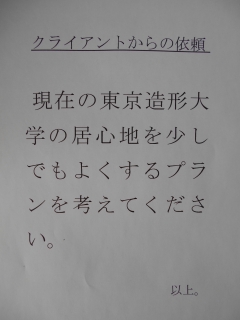 クライアントからの依頼
現在の東京造形大
学の居心地を少し
でもよくするプラ
ンを考えてくださ
い。
以上。